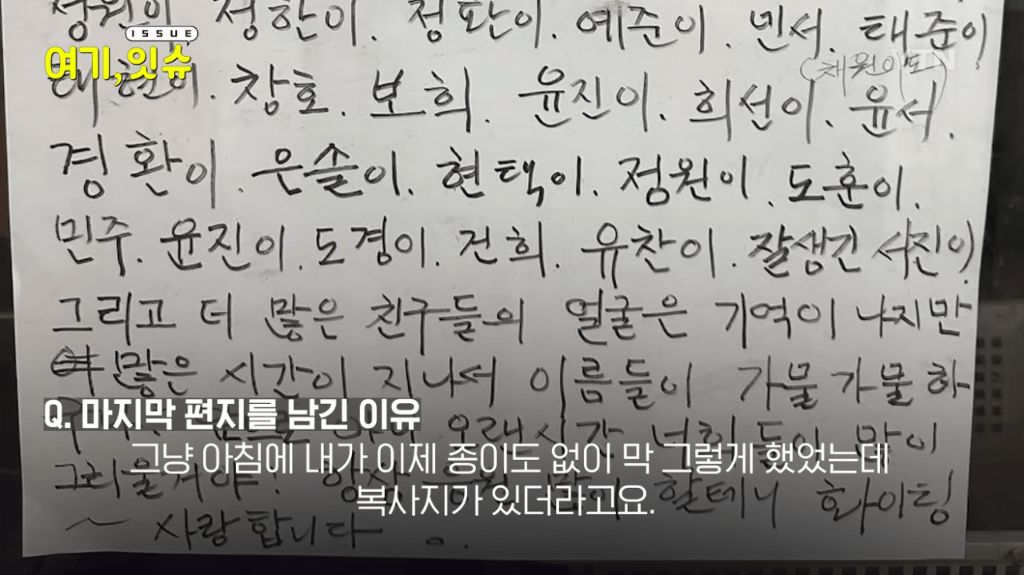 ISSUE
여기, 잇슈
정한이. 정환이. 예준이. 민서. 태준이
(채원이도)
태현이. 창호. 보희. 윤진이. 희선이. 윤서.
경환이. 은솔이. 현택이. 정원이. 도훈이.
민주. 윤진이. 도경이. 건희. 유찬이. 잘생긴 서진이
그리고 더 많은 친구들의 얼굴은 기억이 나지만
많은 시간이 지나서 이름들이 가물가물 하
너희들이 많이
그리울거야! 할테니 화이팅
~ 사랑합니다.
Q. 마지막 편지를 남긴 이유
그냥 아침에 내가 이제 종이도 없이 막 그렇게 했었는데
복사지가 있더라고요.